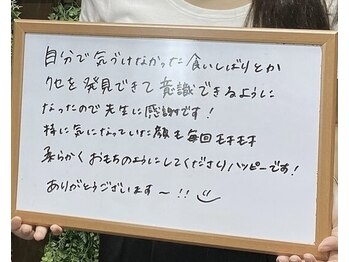 自分で気づけなかった食いしばりとか
クセを発見できて意識できるように
なったので先生に感謝です！
特に気になっていた顔も毎回モチモチ
柔らかくおもちのようにしてくださりハッピーです！
ありがとうございます〜!!